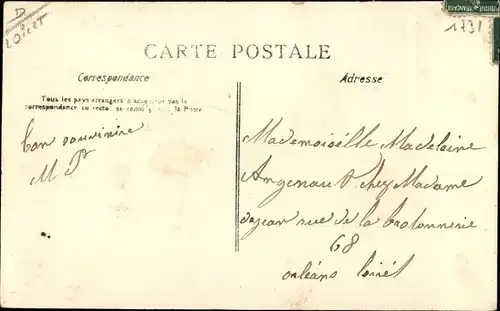 D
Loiret
1731
CARTE POSTALE
Correspondance
Tous les pays étrangers n'acceptent pas la
correspondance au recto, se renseigner à la Poste
Adresse
bon souvinire
M
Mademoisélle Madeleine
chez Madame
dejean rue de la bretonnerie
68
orléans loirét